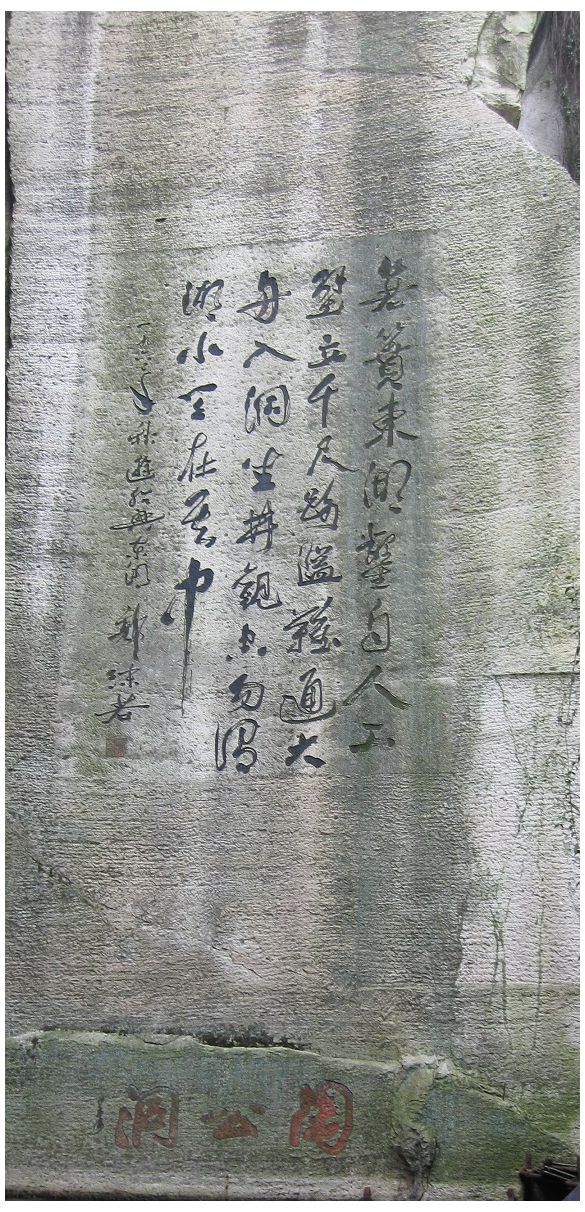 箬簣東湖鑿自人工
壁立千尺路隘難通大
舟入洞坐井觀空勿謂
湖小天在其中
一九六二年秋遊紹興东湖 郭沫若
陶公洞